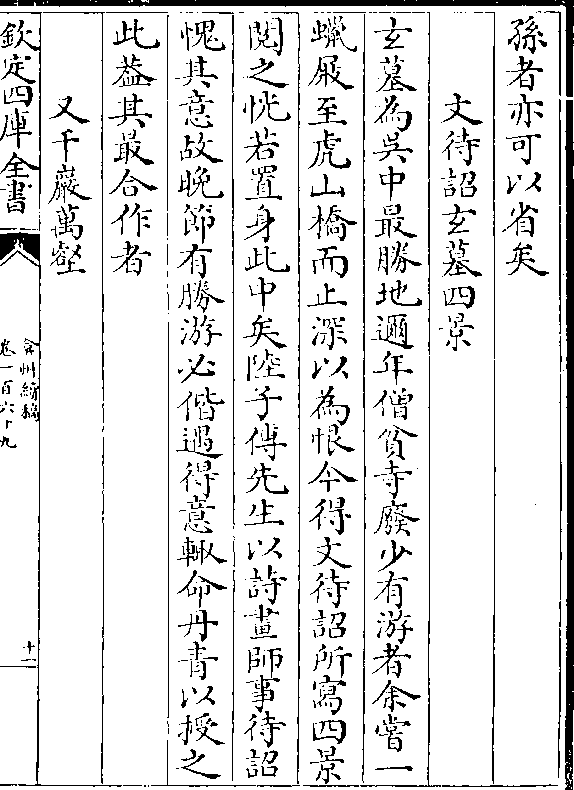 孫者亦可以省矣
文待詔玄墓四景
玄墓為吳中最勝地邇年僧貧寺廢少有游者余嘗一
蠟屐至虎山橋而止深以為恨今得文待詔所寫四景
閱之恍若置身此中矣陸子傅先生以詩畫師事待詔
愧其意故晚節有勝游必偕遇得意輙命丹青以授之
此葢其最合作者
又千巖萬壑
欽定四庫全書
弇州續稿
卷一百六十九
十一